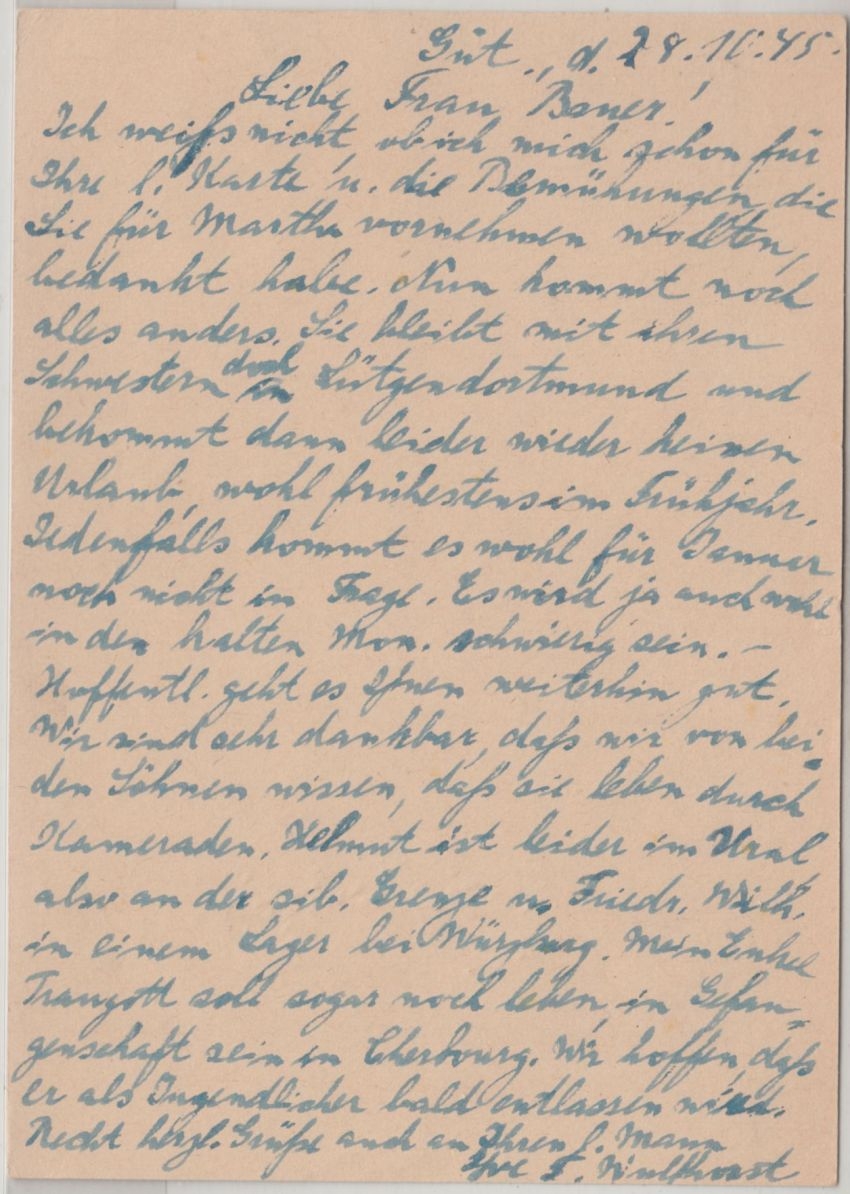 Güt., d. 28.10.45.
Liebe Frau Bauer!
Ich weiss nicht ob ich mich schon für
Ihre l. Karte u. die Bemühungen, die
Sie für Martha vornehmen wollten,
bedankt habe. Nun kommt noch
alles anders. Sie bleibt mit ihren
Schwestern in Lütgendortmund und
bekommt dann leider wieder keinen
Urlaub, wohl frühestens im Frühjahr.
Jedenfalls kommt es wohl für Januar
noch nicht in Frage. Es wird ja auch wohl
in den kalten Mon. schwierig sein. –
Hoffentl. geht es Ihnen weiterhin gut.
Wir sind sehr dankbar, dass wir von bei-
den Söhnen wissen, dass sie leben durch
Kameraden. Helmut ist leider im Ural,
also an der sib. Grenze u. Friedr. Wilh.
in einem Lager bei Würzburg. Mein Enkel
Traugott soll sogar noch leben, in Gefan-
genschaft sein in Cherbourg. Wir hoffen, dass
er als Jugendlicher bald entlassen wird.
Recht herzl. Grüße auch an Ihren l. Mann
Ihre F. Wulfhorst